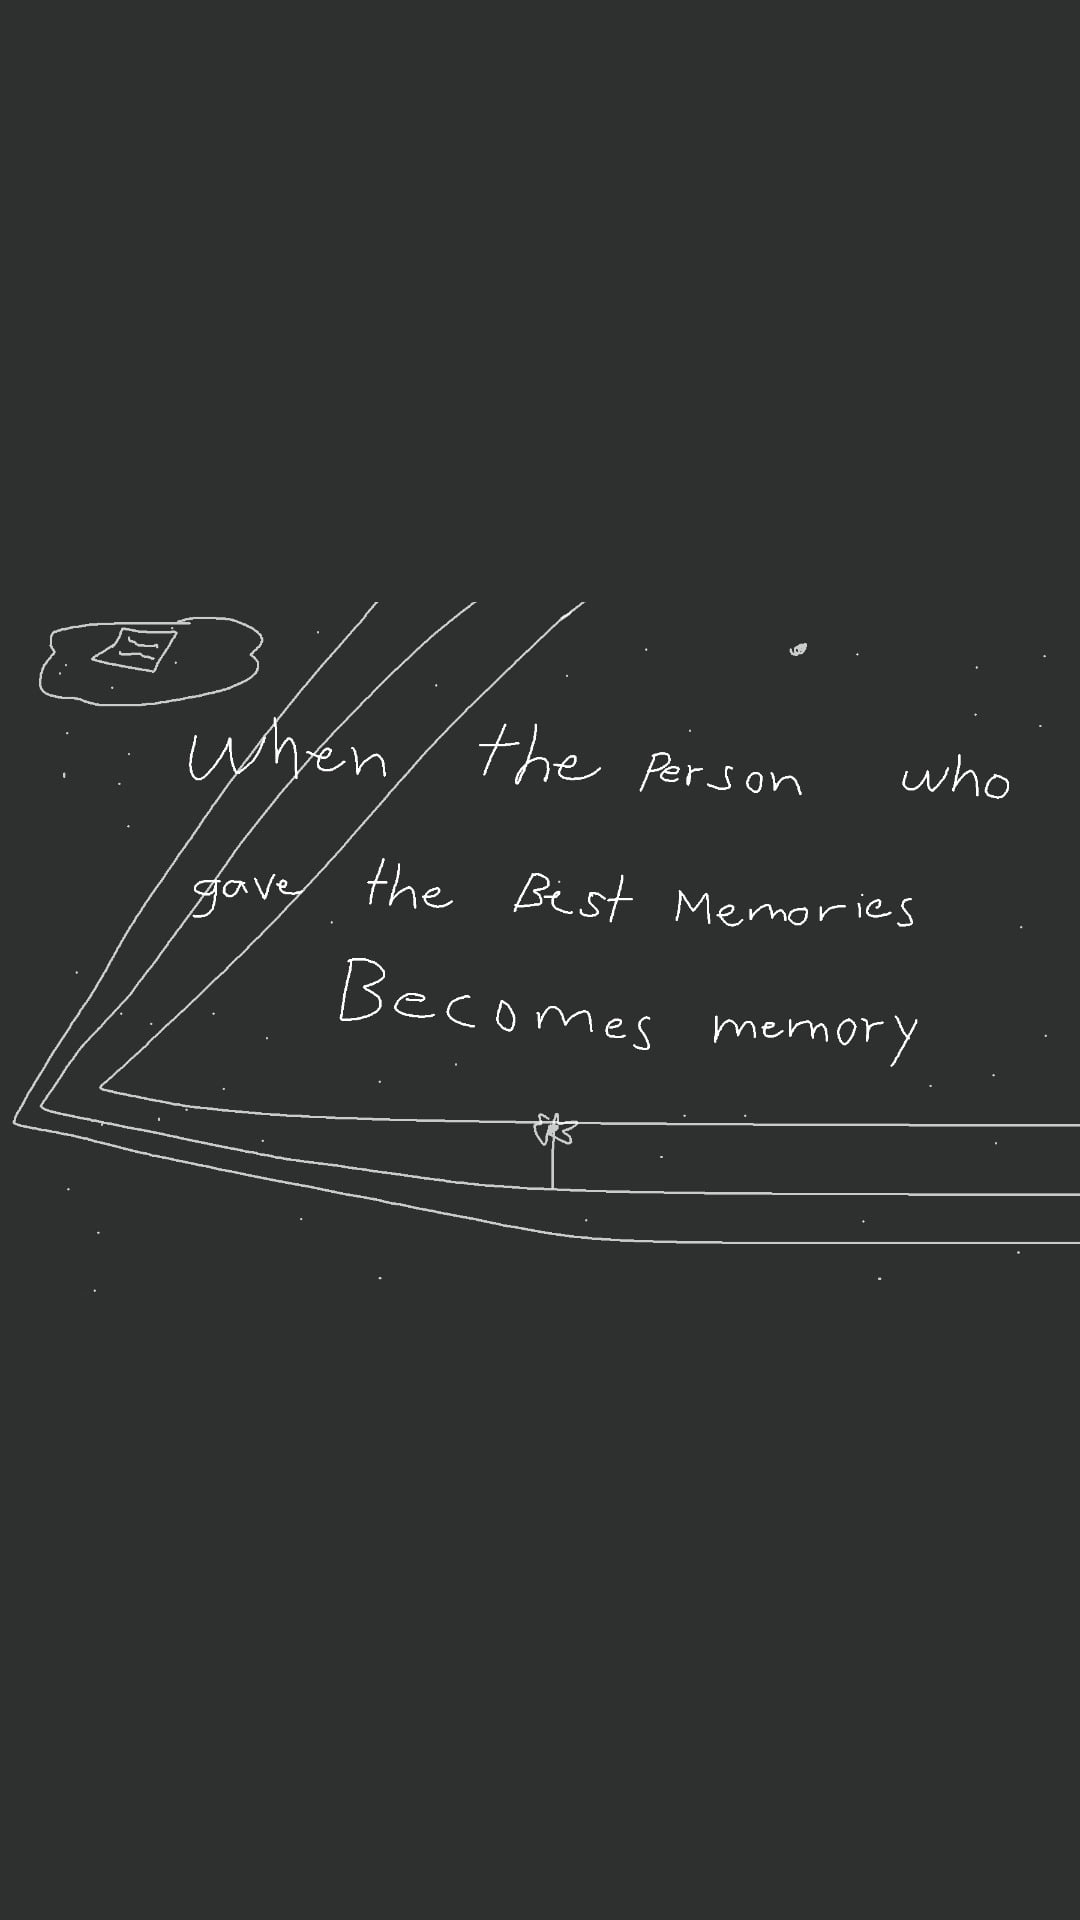 When the Person who
gave the Best Memories
Becomes memory